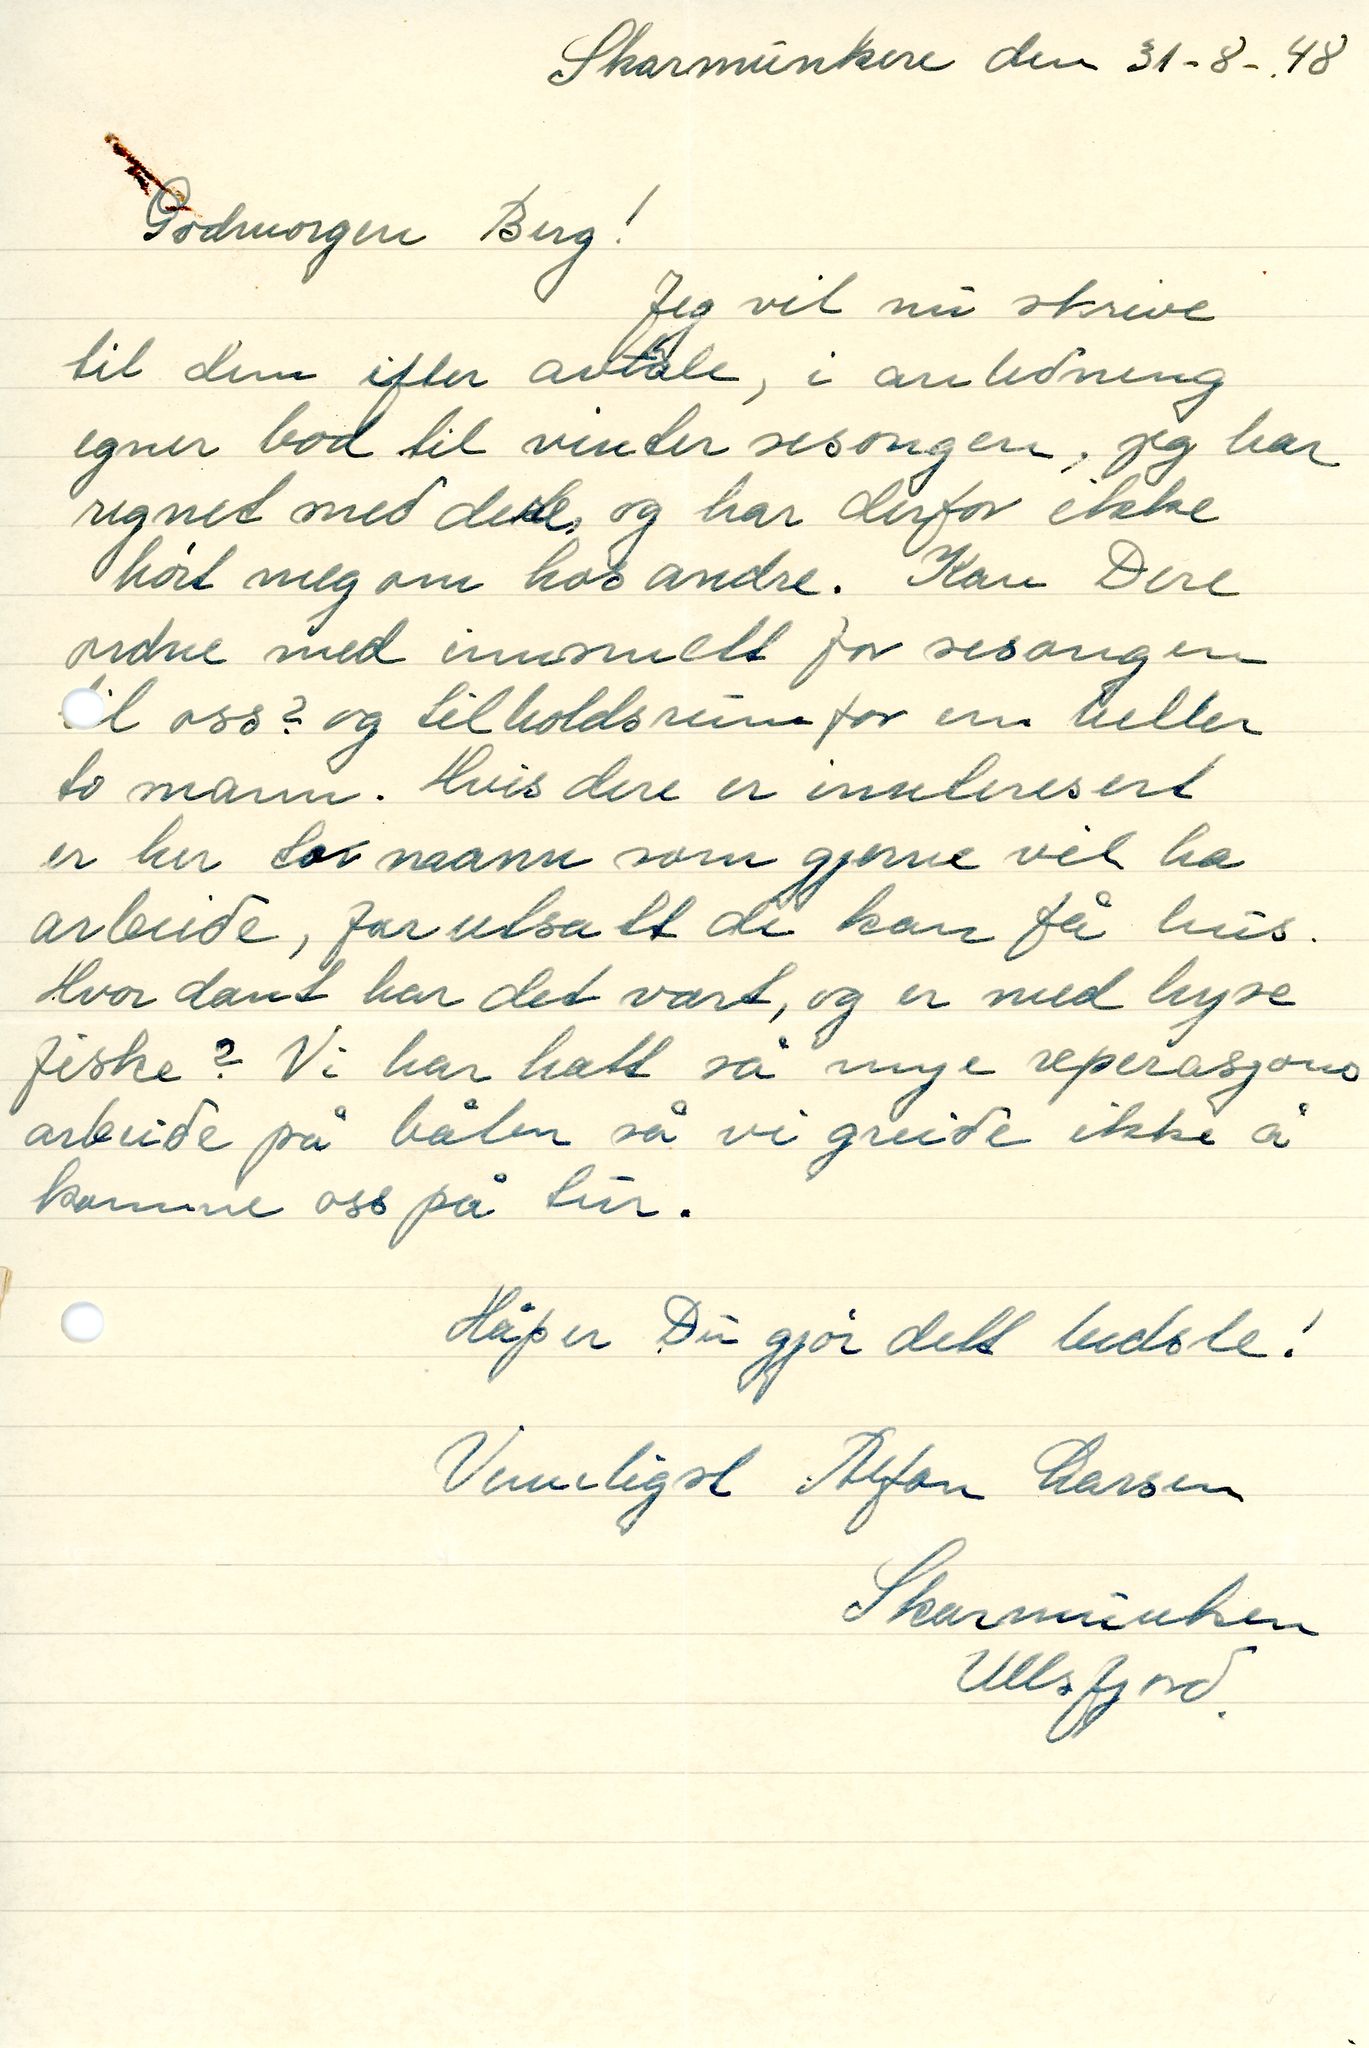 Skarmunken den 31-8-.48
Godmorgen Berg!
Jeg vil nu skrive
til dem ifter avtale, i anledning
egner bod til vinter sesongen, jeg har
regnet med dette, og har derfor ikke
hört meg om hos andre. Kan Dere
ordne med innsmelt for sesongen
til oss? og tilholdsrum for en heller
to mann. Hvis dere er innteresert
er her to mann som gjerne vil ha
arbeide, forutsatt de kan få hus.
Hvordant har det vært, og er med hyse
fiske? Vi har hatt så mye reperasjons
arbeide på båten så vi greide ikke å
komme oss på tur.
Håper Du gjör dett bedste!
Vennligst Alfon Larsen
Skarmunken
Ullsfjord.